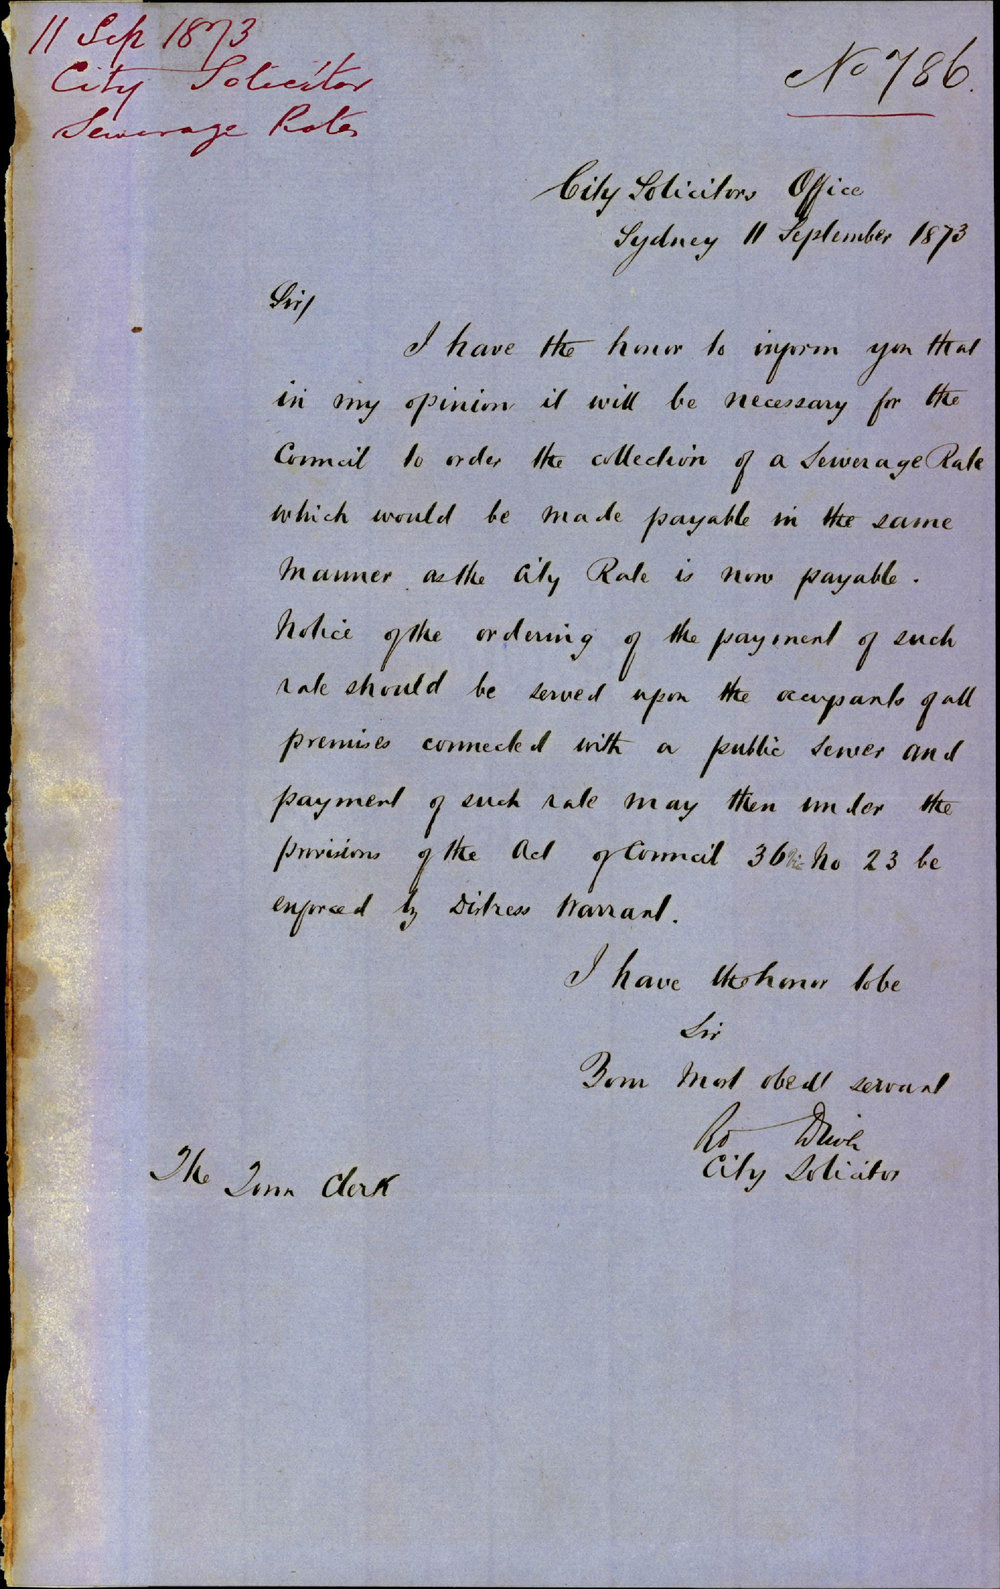 11 Sep 1873
City Solicitor
Sewerage Rates
No 786.
City Solicitors Office
Sydney 11 September 1873
Sir/
I have the honor to inform you that
in my opinion it will be necessary for the
Council to order the collection of a Sewerage Rate
which would be made payable in the same
manner as the City Rate is now payable.
Notice of the ordering of the payment of such
rate should be served upon the occupants of all
premises connected with a public sewer and
payment of such rate may then under the
provisions of the Act of Council 36 Vic No 23 be
enforced by Distress Warrant.
I have the honor to be
Sir
Your most obedt servant
City Solicitor
The Town Clerk